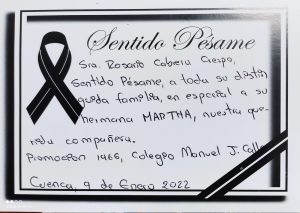 Sentido Pésame
Sra. Rosario Cabrera Crespo,
Sentido Pésame, a toda su distin
guida familia, en especial a su
hermana MARTHA, nuestra que-
rida compañera.
Promocion 1966, Colegio Manuel J. Calle
Cuenca, 9 de Enero 2022